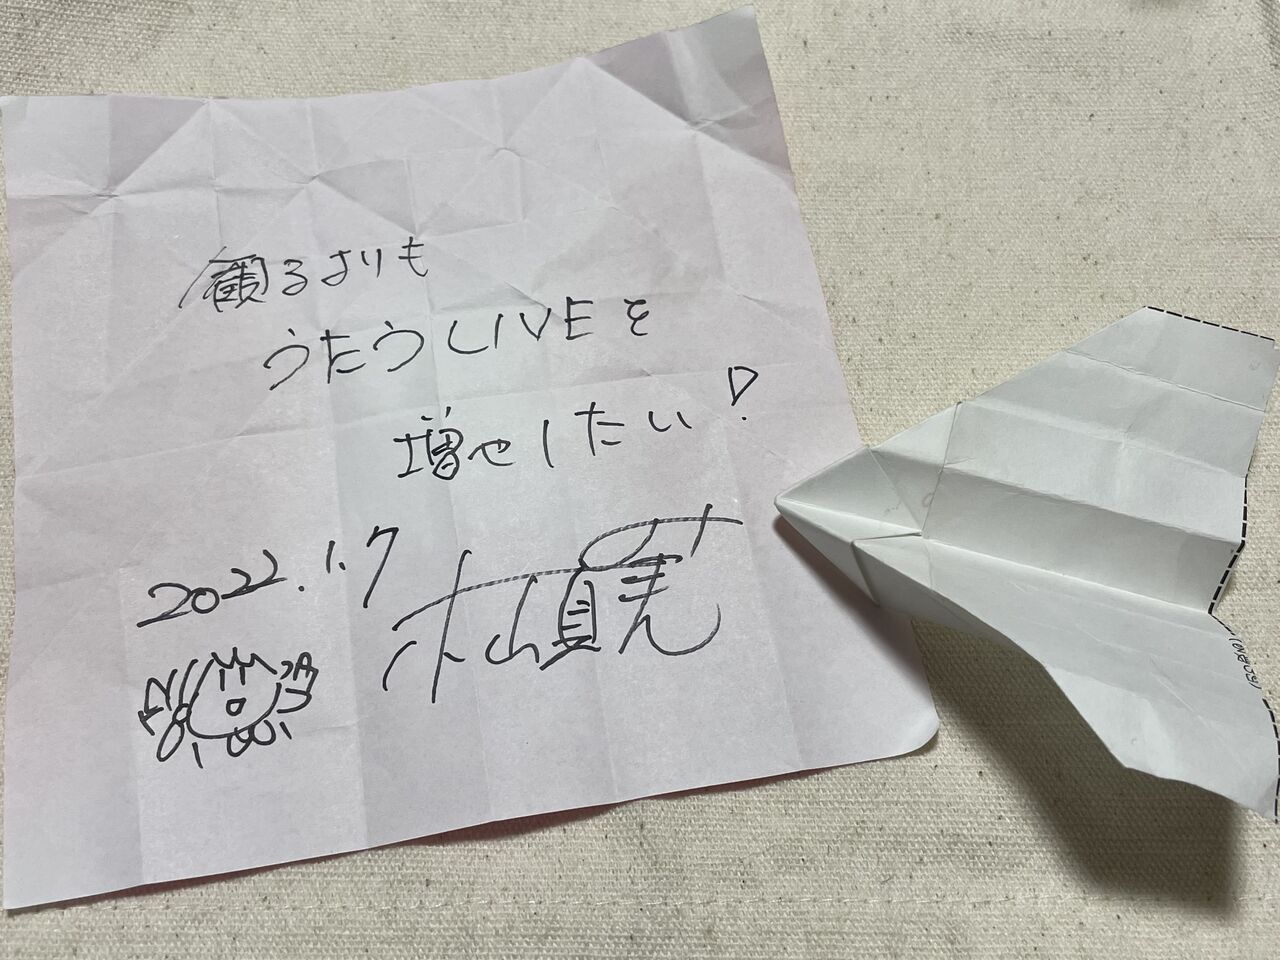 観るよりも
うたうLIVEを
増やしたい!
2022.1.7